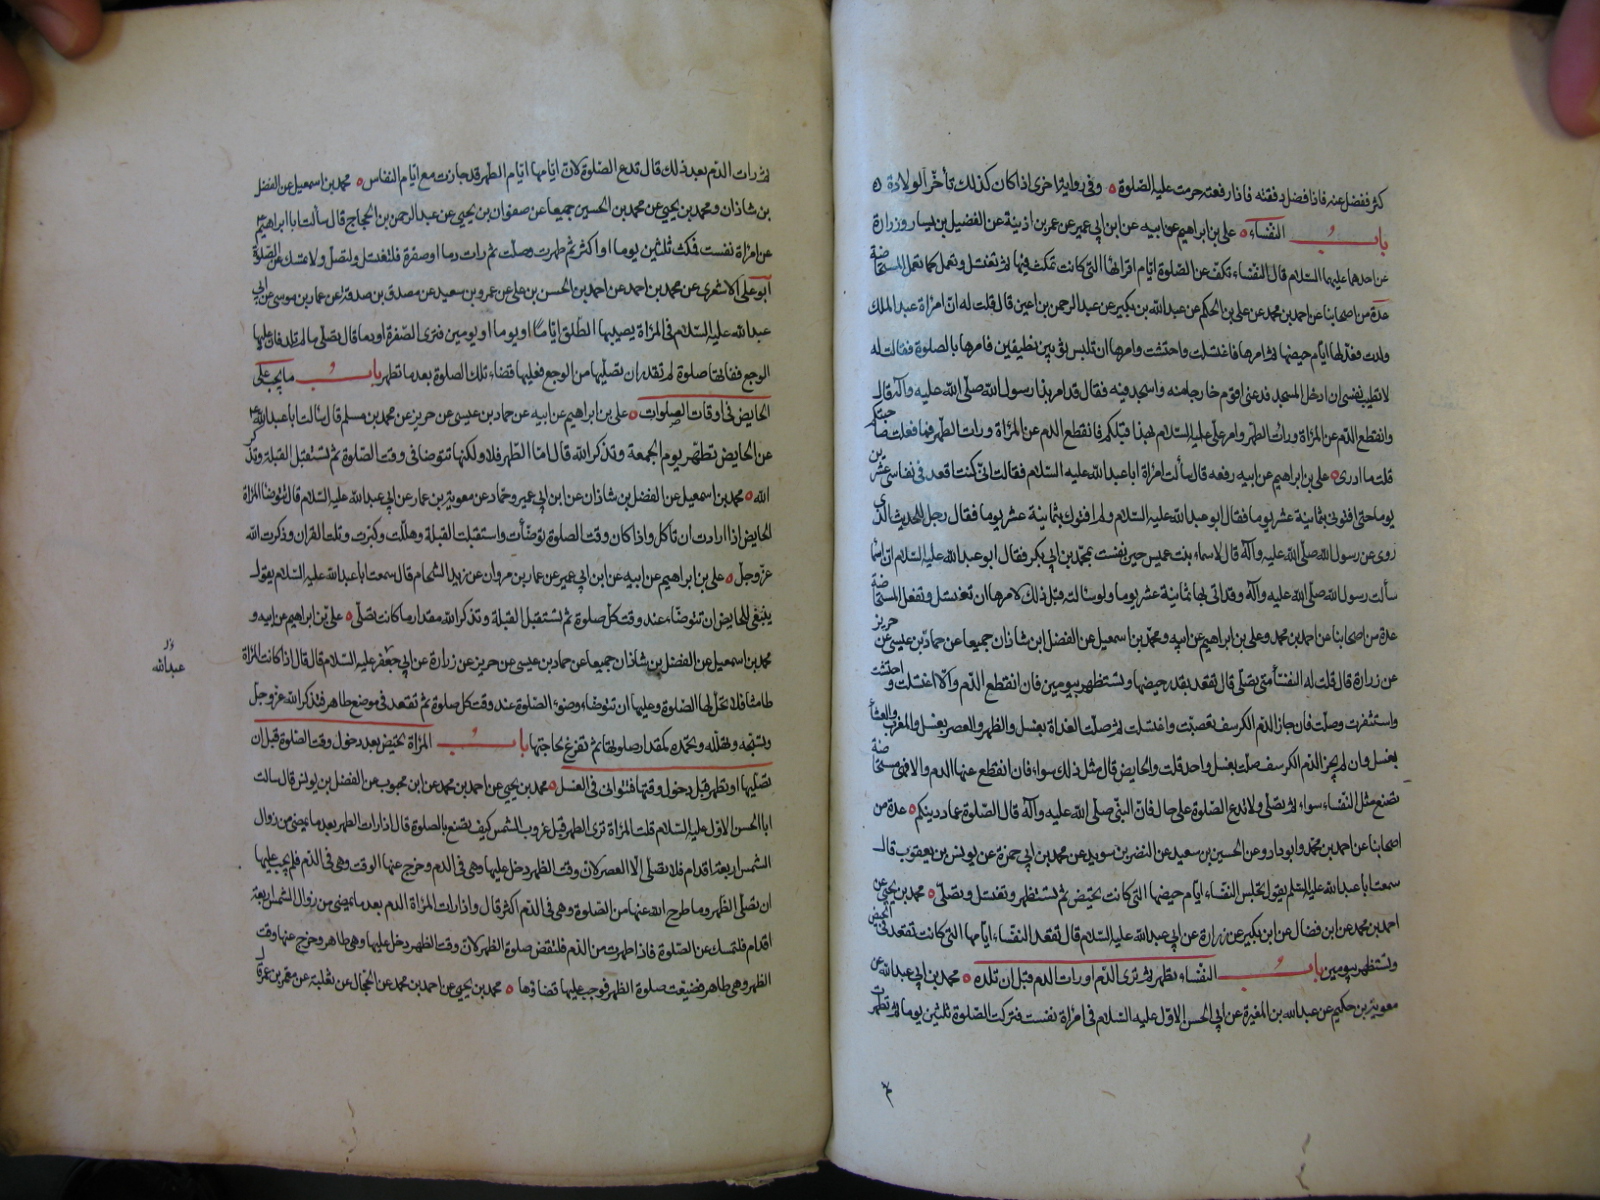 كثر ففضل عنه فاذا فضل دفقته فاذا رفعته حرمت عليه الصلوة ٥ وفي رواية اخرى اذا كان كذلك تأخر الولادة ٥
باب النفساء ٥ علي بن ابراهيم عن ابيه عن ابن ابي عمير عن عمر بن اذنية عن الفضيل بن يسار وزرارة
عن احدهما عليهما السلام قال النفساء تكف عن الصلوة ايام اقرائها التي كانت تمكث فيها ثم تغتسل وتعمل كما تعمل المستحاضة
عدة من اصحابنا عن احمد بن محمد عن علي بن الحكم عن عبد الله بن بكير عن عبد الرحمن بن اعين قال قلت له ان امراة عبد الملك
ولدت فعد لها ايام حيضها ثم امرها فاغتسلت واحتشت وامرها ان تلبس ثوبين نظيفين فامرها بالصلوة فقالت له
لا تطيب نفسي ان ادخل المسجد فدعني اقوم خارجا منه واسجد فيه فقال قد امر بذا رسول الله صلى الله عليه وآله قال
وانقطع الدم عن المراة ورات الطهر وامر علي عليه السلام بهذا قبلكم فانقطع الدم عن المراة ورات الطهر فما فعلت صاحبتكم
قلت ما ادري ٥ علي بن ابراهيم عن ابيه رفعه قال سألت امراة ابا عبد الله عليه السلام فقالت اني كنت اقعد في نفاسي عشرين
يوما حتى افتوني بثمانية عشر يوما فقال ابو عبد الله عليه السلام ولم افتوك بثمانية عشر يوما فقال رجل للحديث الذي
روى عن رسول الله صلى الله عليه وآله قال لاسماء بنت عميس حين نفست بمحمد بن ابي بكر فقال ابو عبد الله عليه السلام ان اسما
سألت رسول الله صلى الله عليه وآله وقد اتى لها ثمانية عشر يوما ولو سالته قبل ذلك لامرها ان تغتسل وتفعل المستحاضة
عدة من اصحابنا عن احمد بن محمد وعلي بن ابراهيم عن ابيه ومحمد بن اسمعيل عن الفضل ابن شاذان جميعا عن حماد بن عيسى عن حريز
عن زرارة قال قلت له النفسأ متى تصلي قال تقعد بقدر حيضها وتستظهر بيومين فان انقطع الدم والا اغتسلت واحتشت
واستثفرت وصلت فان جاز الدم الكرسف تعصبت واغتسلت ثم صلت الغداة بغسل والظهر والعصر بغسل والمغرب والعشأ
بغسل وان لم يجز الدم الكرسف صلت بغسل واحد قلت والحايض قال مثل ذلك سواء فان انقطع عنها الدم والا فهي مستحاضة
تصنع مثل النفساء سواء ثم تصلي ولا تدع الصلوة على حال فان النبي صلى الله عليه وآله قال الصلوة عماد دينكم ٥ عدة من
اصحابنا عن احمد بن محمد وابو داود عن الحسين بن سعيد عن النضر بن سويد عن محمد بن ابي حمزة عن يونس بن يعقوب قال
سمعت ابا عبد الله عليه السلم يقول تجلس النفساء ايام حيضها التي كانت تحيض ثم تستظهر وتغتسل وتصلي ٥ محمد بن يحيى عن
احمد بن محمد عن ابن فضال عن ابن بكير عن زرارة عن ابي عبد الله عليه السلام قال تقعد النفساء ايامها التي كانت تقعد في الحيض
وتستظهر بيومين باب النفساء تطهر ثم ترى الدم او رات الدم قبل ان تلد ٥ محمد بن ابي عبد الله عن
معوية بن حكيم عن عبد الله بن المغيرة عن ابي الحسن الاول عليه السلام في امراة نفست فتركت الصلوة ثلثين يوما ثم تطهرت
ثم رات الدم بعد ذلك قال تدع الصلوة لان ايامها ايام الطهر قد جازت مع ايام النفاس ٥ محمد بن اسمعيل عن الفضل
بن شاذان ومحمد بن يحيى عن محمد بن الحسين جميعا عن صفوان بن يحيى عن عبد الرحمن بن الحجاج قال سألت ابا ابراهيم ع
عن امراة نفست فمكث ثلثين يوما او اكثر ثم طهرت وصلت ثم رات دما او صفرة فلتغتسل ولتصل ولا تمسك عن الصلوة
ابو علي الاشعري عن محمد بن احمد عن احمد بن الحسن بن علي عن عمرو بن سعيد عن مصدق بن صدقة عن عمار بن موسى عن ابي
عبد الله عليه السلام في المراة يصيبها الطلق اياما او يوما او يومين فترى الصفرة او دما قال تصلي ما لم تلد فان غلبها
الوجع ففاتها صلوة لم تقدر ان تصليها من الوجع فعليها قضاء تلك الصلوة بعد ما تطهر باب ما يجب على
الحايض في اوقات الصلوات ٥ علي بن ابراهيم عن ابيه عن حماد بن عيسى عن حريز عن محمد بن مسلم قال سالت ابا عبد الله ع
عن الحايض تطهر يوم الجمعة وتذكر الله قال اما الطهر فلا ولكنها تتوضا في وقت الصلوة ثم تستقبل القبلة وتذكر
الله ٥ محمد بن اسمعيل عن الفضل بن شاذان عن ابن ابي عمير وحماد عن معوية بن عمار عن ابي عبد الله عليه السلام قال تتوضا المراة
الحايض اذا ارادت ان تأكل واذا كان وقت الصلوة توضأت واستقبلت القبلة وهللت وكبرت وتلت القران وذكرت الله
عز وجل ٥ علي بن ابراهيم عن ابيه عن ابن ابي عمير عن عمار بن مروان عن زيد الشحام قال سمعت ابا عبد الله عليه السلام يقول
ينبغي للحايض ان تتوضاء عند وقت كل صلوة ثم تستقبل القبلة وتذكر الله مقدار ما كانت تصلي ٥ علي بن ابراهيم عن ابيه و
محمد بن اسمعيل عن الفضل بن شاذان جميعا عن حماد بن عيسى عن حريز عن زرارة عن ابي جعفر عليه السلام قال قال اذا كانت المراة
عبدالله
طامثا فلا تحل لها الصلوة وعليها ان تتوضاء وضوء الصلوة عند وقت كل صلوة ثم تقعد في موضع طاهر فتذكر الله عز وجل
وتسبحه وتهلله وتحمده كمقدار صلوتها ثم تفرغ لحاجتها باب المراة تحيض بعد دخول وقت الصلوة قبل ان
تصليها او تطهر قبل دخول وقتها فتتوانى في الغسل ٥ محمد بن يحيى عن احمد بن محمد عن ابن محبوب عن الفضل بن يونس قال سالت
ابا الحسن الاول عليه السلام قلت المراة ترى الطهر قبل غروب الشمس كيف تصنع بالصلوة قال اذا رات الطهر بعد ما يمضي من زوال
الشمس اربعة اقدام فلا تصلي الا العصر لان وقت الظهر دخل عليها وهي في الدم وخرج عنها الوقت وهي في الدم فلم يجب عليها
ان تصلي الظهر وما طرح الله عنها من الصلوة وهي في الدم اكثر قال واذا رات المراة الدم بعد ما يمضي من زوال الشمس اربعة
اقدام فلتمسك عن الصلوة فاذا طهرت من الدم فلتقض صلوة الظهر لان وقت الظهر دخل عليها وهي طاهر وخرج عنها وقت
الظهر وهي طاهر فضيعت صلوة الظهر فوجب عليها قضاؤها ٥ محمد بن يحيى عن احمد بن محمد عن الحجال عن ثعلبة عن معمر بن